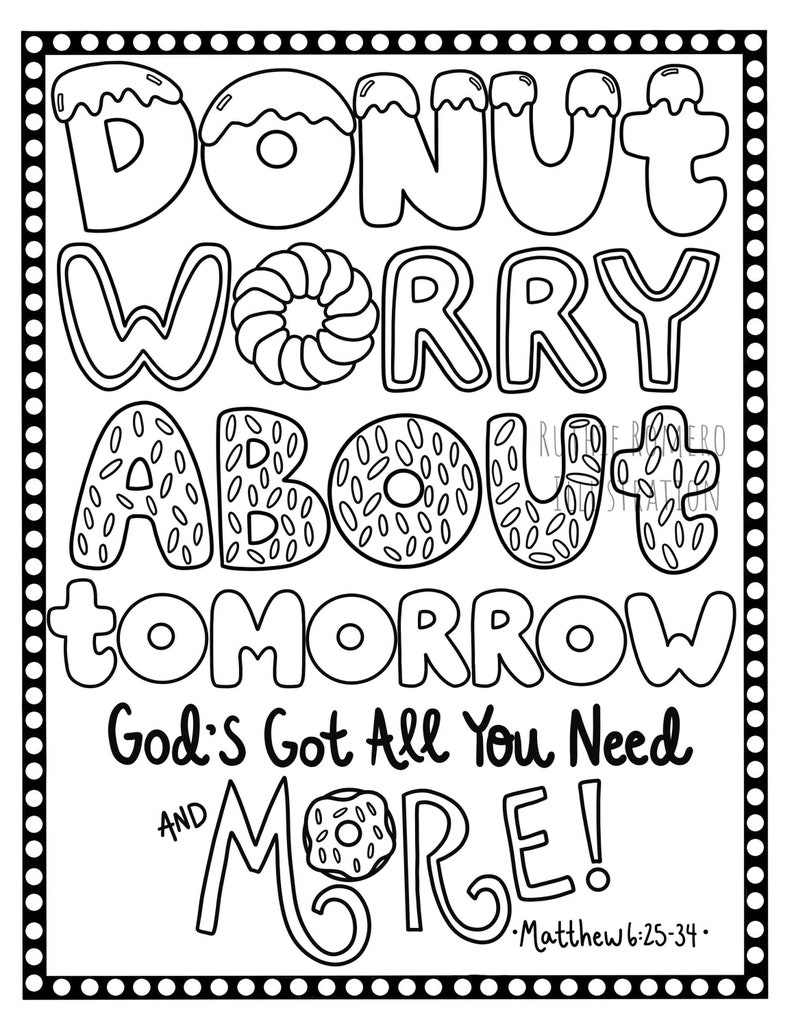 DONUt
WORRY
ABOUt
tOMORROW
God's Got All You Need
AND MORE!
·Matthew 6:25-34·
Ruthie Romero
Illustration